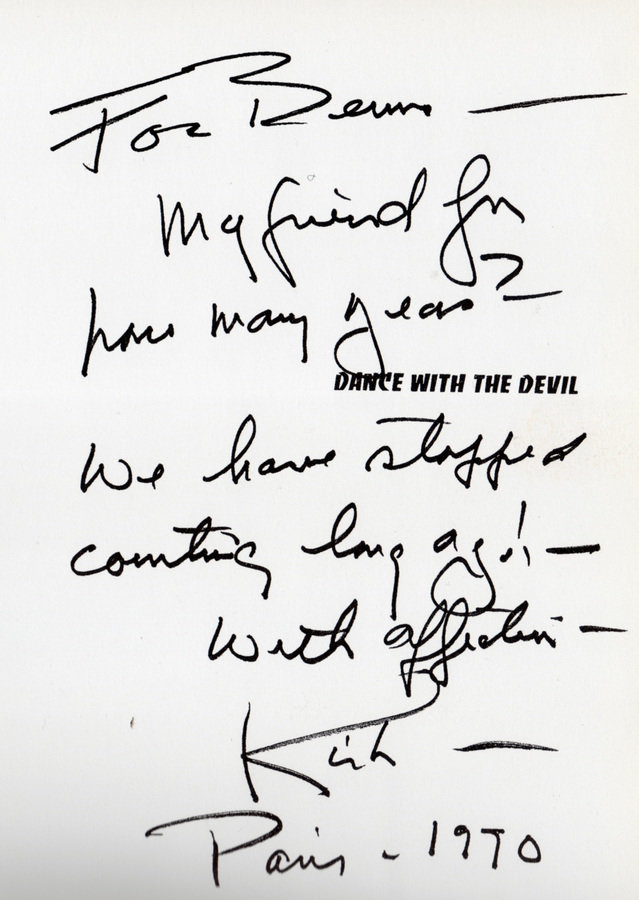 For Benno —
My friend for
how many years? —
DANCE WITH THE DEVIL
We have stopped
counting long ago! —
With affection —
Kirk —
Paris - 1970